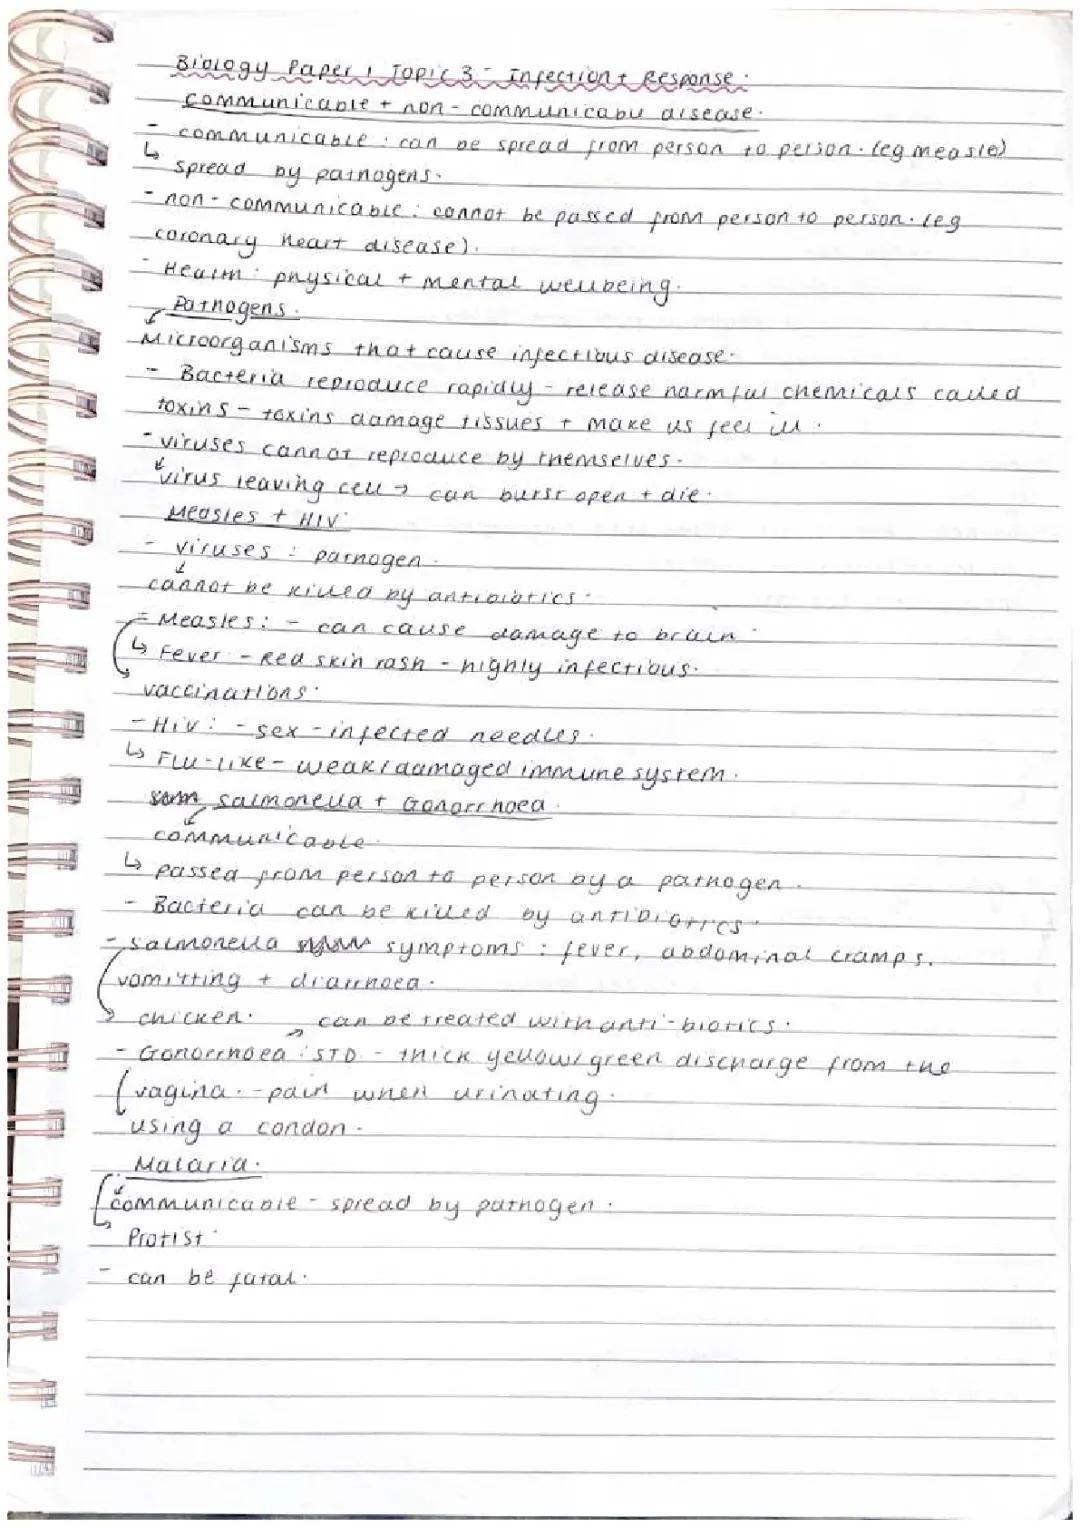 Biology Paper 1 Topic 3 - Infection + Response.
communicable + non-communicable disease.
- communicable : can be spread from person to person. (eg measle)
↳ spread by pathogens.
- non-communicable : cannot be passed from person to person. (eg
coronary heart disease).
- Health : physical + mental wellbeing.
Pathogens.
Microorganisms that cause infectious disease.
- Bacteria reproduce rapidly - release harmful chemicals called
toxins - toxins damage tissues + make us feel ill.
- viruses cannot reproduce by themselves.
virus leaving cell → can burst open + die.
Measles + HIV
- viruses : pathogen.
cannot be killed by antibiotics.
- Measles : - can cause damage to brain.
↳ Fever - Red skin rash - highly infectious.
vaccinations.
- HIV : - sex - infected needles.
↳ Flu-like - weak/damaged immune system.
Salmonella + Gonorrhoea.
communicable.
↳ passed from person to person by a pathogen.
- Bacteria can be killed by antibiotics.
- salmonella symptoms : fever, abdominal cramps.
vomitting + diarrhoea.
chicken. can be treated with anti-biotics.
- Gonorrhoea : STD - thick yellow/green discharge from the
vagina. - pain when urinating.
using a condon.
Malaria.
communicable - spread by pathogen.
Protist
- can be fatal.